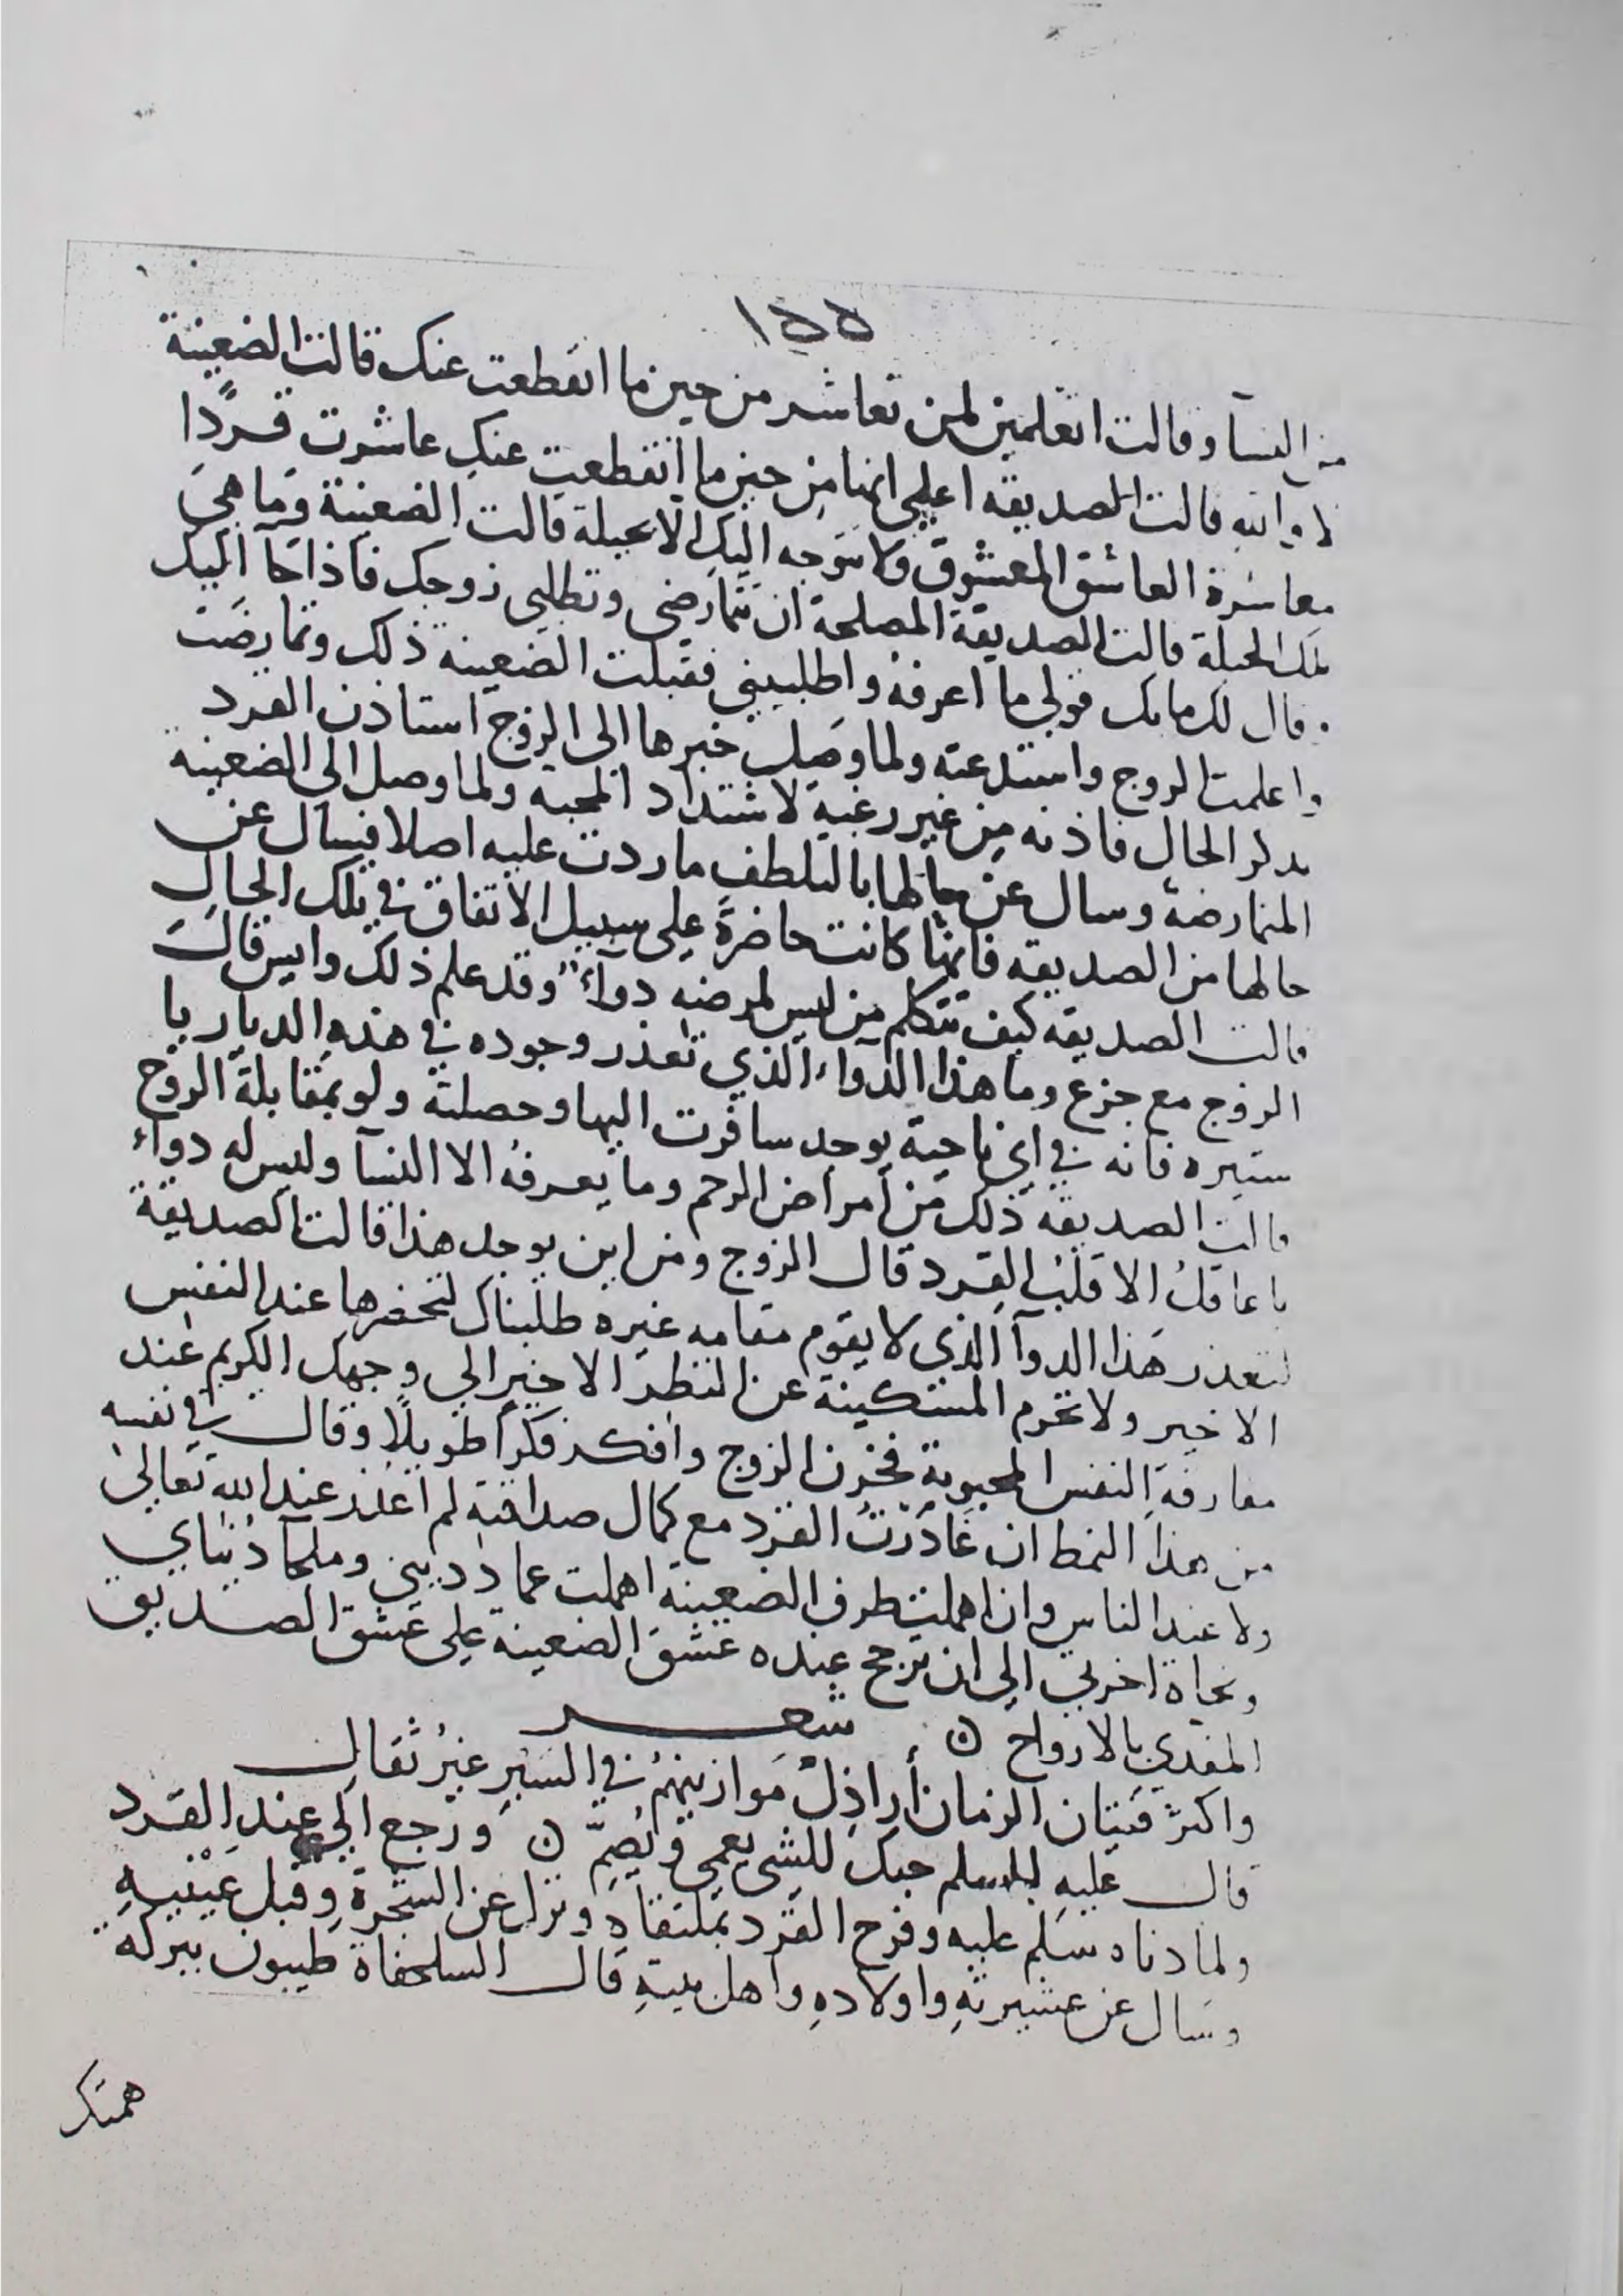 ١٥٥
من النسآ وقالت اتعلمين لمن تعاشر من حين ما انقطعت عنك قالت الضعينة
لا والله قالت الصديقه اعلمي انما من حين ما انقطعت عنك عاشرت قردًا
معاشرة العاشق المعشوق ولا يتوجه اليك الا بحيلة قالت الضعينة وما هي
تلك الحيلة قالت الصديقة المصلحة ان تتمارضي وتطلبي زوجك فاذا جآ اليك
قال لك مابك قولي ما اعرفه واطلبيني فقبلت الضعينه ذلك وتمارضت
واعلمت الزوج واستدعته ولما وصل خبرها الى الزوج استاذن القرد
بذكر الحال فاذنه من غير رغبة لاشتداد المحبة ولما وصل الى الضعينة
المتمارضة وسال عن حالها بالتلطف ماردت عليه اصلا فيسال عن
حالها من الصديقه فانها كانت حاضرة على سبيل الاتفاق في تلك الحال
قالت الصديقه كيف تتكلم من ليس لمرضه دوآء وقد علم ذلك وايس قال
الزوج مع جزع وما هذا الدوآء الذي تعذر وجوده في هذه الديار يا
ستيره فانه في اي ناحية يوجد سافرت اليها وحصلته ولو بمقابلة الروح
قالت الصديقه ذلك من أمراض الرحم وما يعرفه الا النسآ وليس له دوآء
يا عاقل الا قلب القرد قال الزوج ومن اين يوجد هذا قالت الصديقة
لتعذر هذا الدوآ الذي لا يقوم مقامه غيره طلبناك لتحضرها عند النفس
الاخير ولا تحرم المستكينة عن النظر الاخير الى وجهك الكريم عند
مفارقة النفس المحبوبة فحزن الزوج وافكر فكراً طويلاً وقال في نفسه
من هذا النمط ان غادرت القرد مع كمال صداقته لم اعذر عند الله تعالى
ولا عند الناس وان اهملت طرف الضعينة اهملت عماد ديني وملجآ دنياي
ونجاة اخرتي الى ان ترجح عنده عشق الضعينة على عشق الصديق
المفدي بالارواح ن شعر
واكثر فتيان الزمان أراذل موازينهم في السير غير ثقال
قال عليه السلام حبك للشي يعمي ويصم ن ورجع الى عند القرد
ولما دناه سلم عليه وفرح القرد بملتقاه ونزل عن الشجرة وقبل عينيه
وسال عن عشيرته واولاده واهل بيته قال السلحفاة طيبون ببركة
همتك